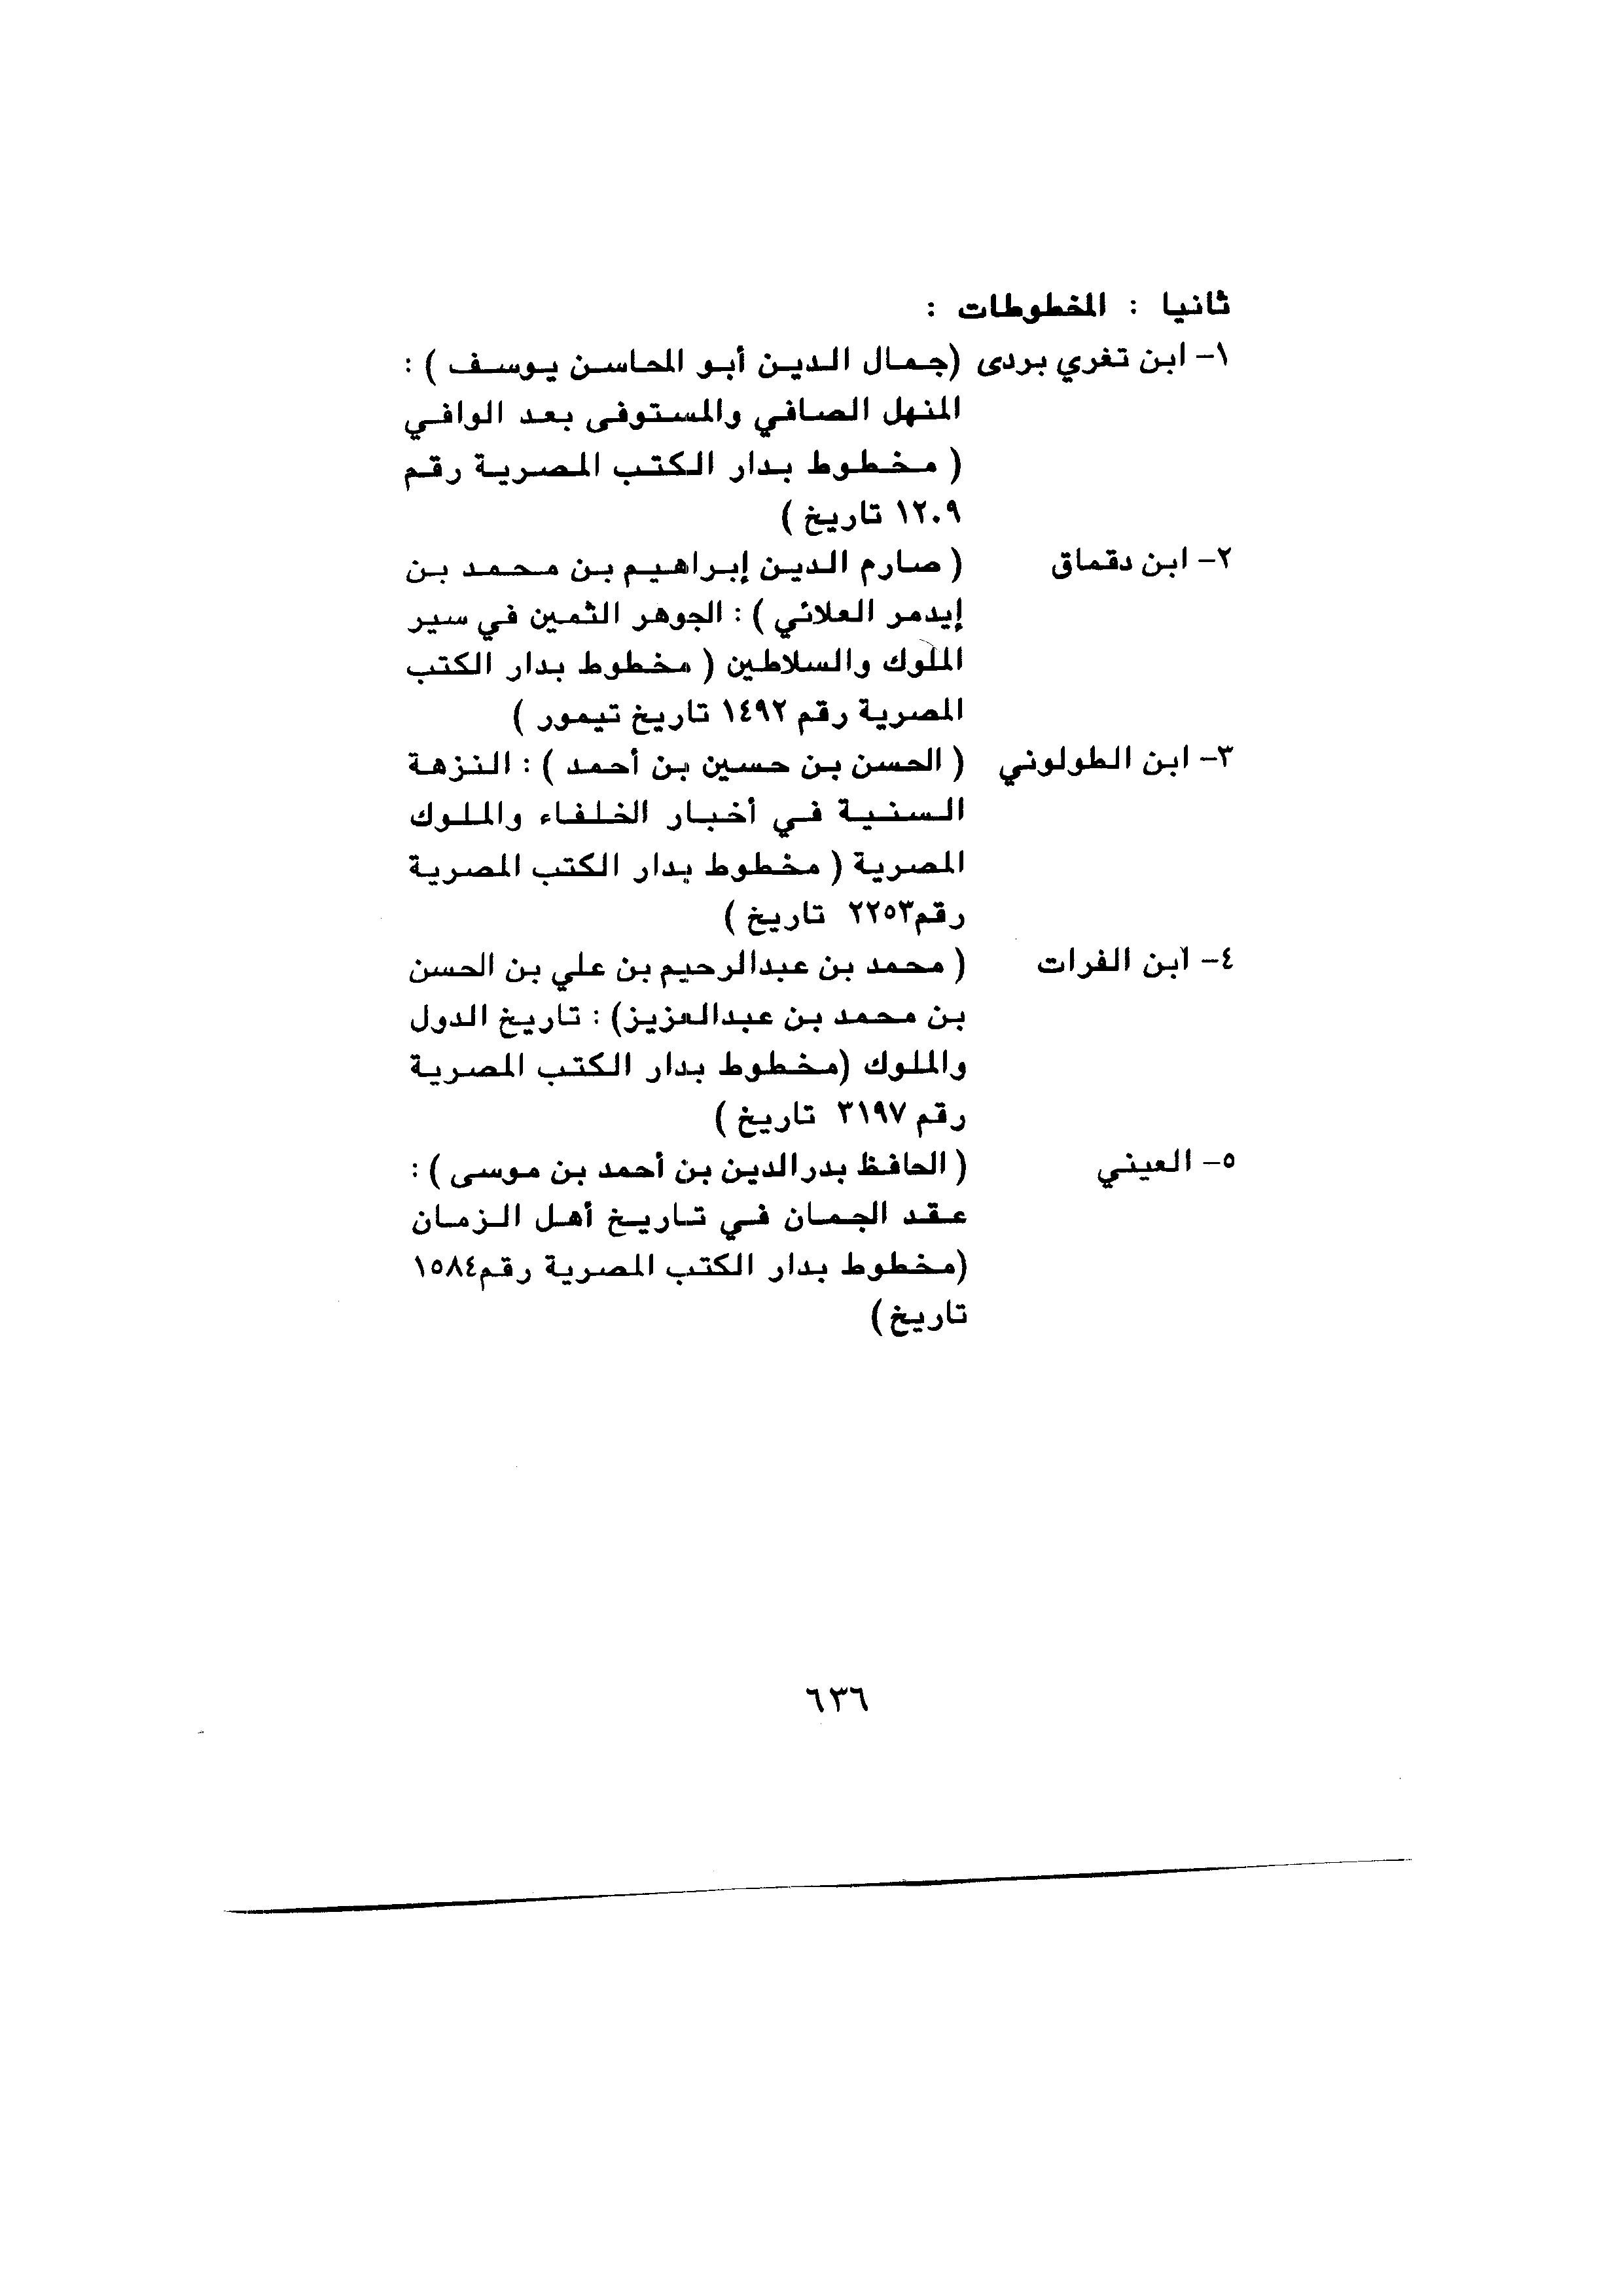 ثانيا : المخطوطات :
١- ابن تغري بردى (جمال الدين أبو المحاسن يوسف ) :
المنهل الصافي والمستوفى بعد الوافي
( مخطوط بدار الكتب المصرية رقم
١٢٠٩ تاريخ )
٢- ابن دقماق ( صارم الدين إبراهيم بن محمد بن
إيدمر العلائي ) : الجوهر الثمين في سير
الملوك والسلاطين ( مخطوط بدار الكتب
المصرية رقم ١٤٩٢ تاريخ تيمور )
٣- ابن الطولوني ( الحسن بن حسين بن أحمد ) : النزهة
السنية في أخبار الخلفاء والملوك
المصرية ( مخطوط بدار الكتب المصرية
رقم٢٢٥٣ تاريخ )
٤- ابن الفرات ( محمد بن عبدالرحيم بن علي بن الحسن
بن محمد بن عبدالعزيز) : تاريخ الدول
والملوك (مخطوط بدار الكتب المصرية
رقم ٣١٩٧ تاريخ )
٥- العيني ( الحافظ بدرالدين بن أحمد بن موسى ) :
عقد الجمان في تاريخ أهل الزمان
(مخطوط بدار الكتب المصرية رقم١٥٨٤
تاريخ )
٦٣٦